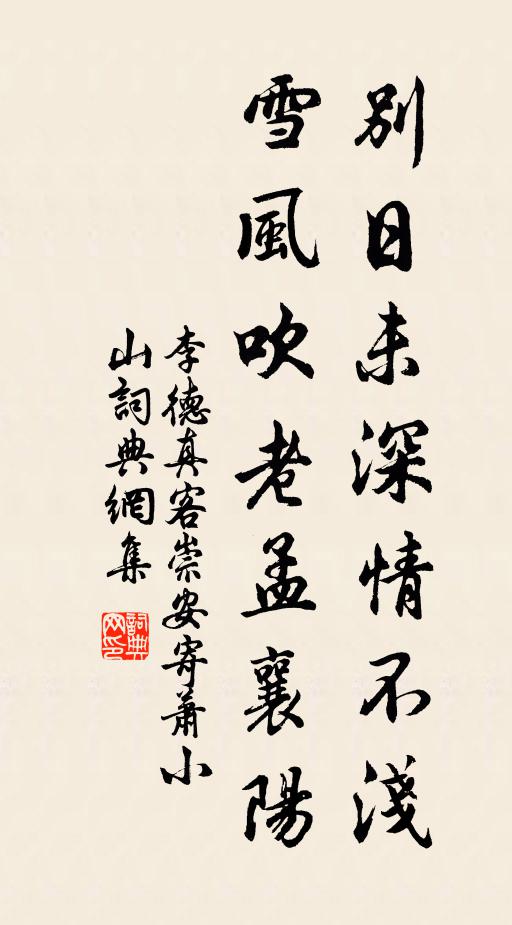 別日未深情不淺
雪風吹老孟襄陽
李德真客崇安寄蕭小
山詞典網集
詞典
网印